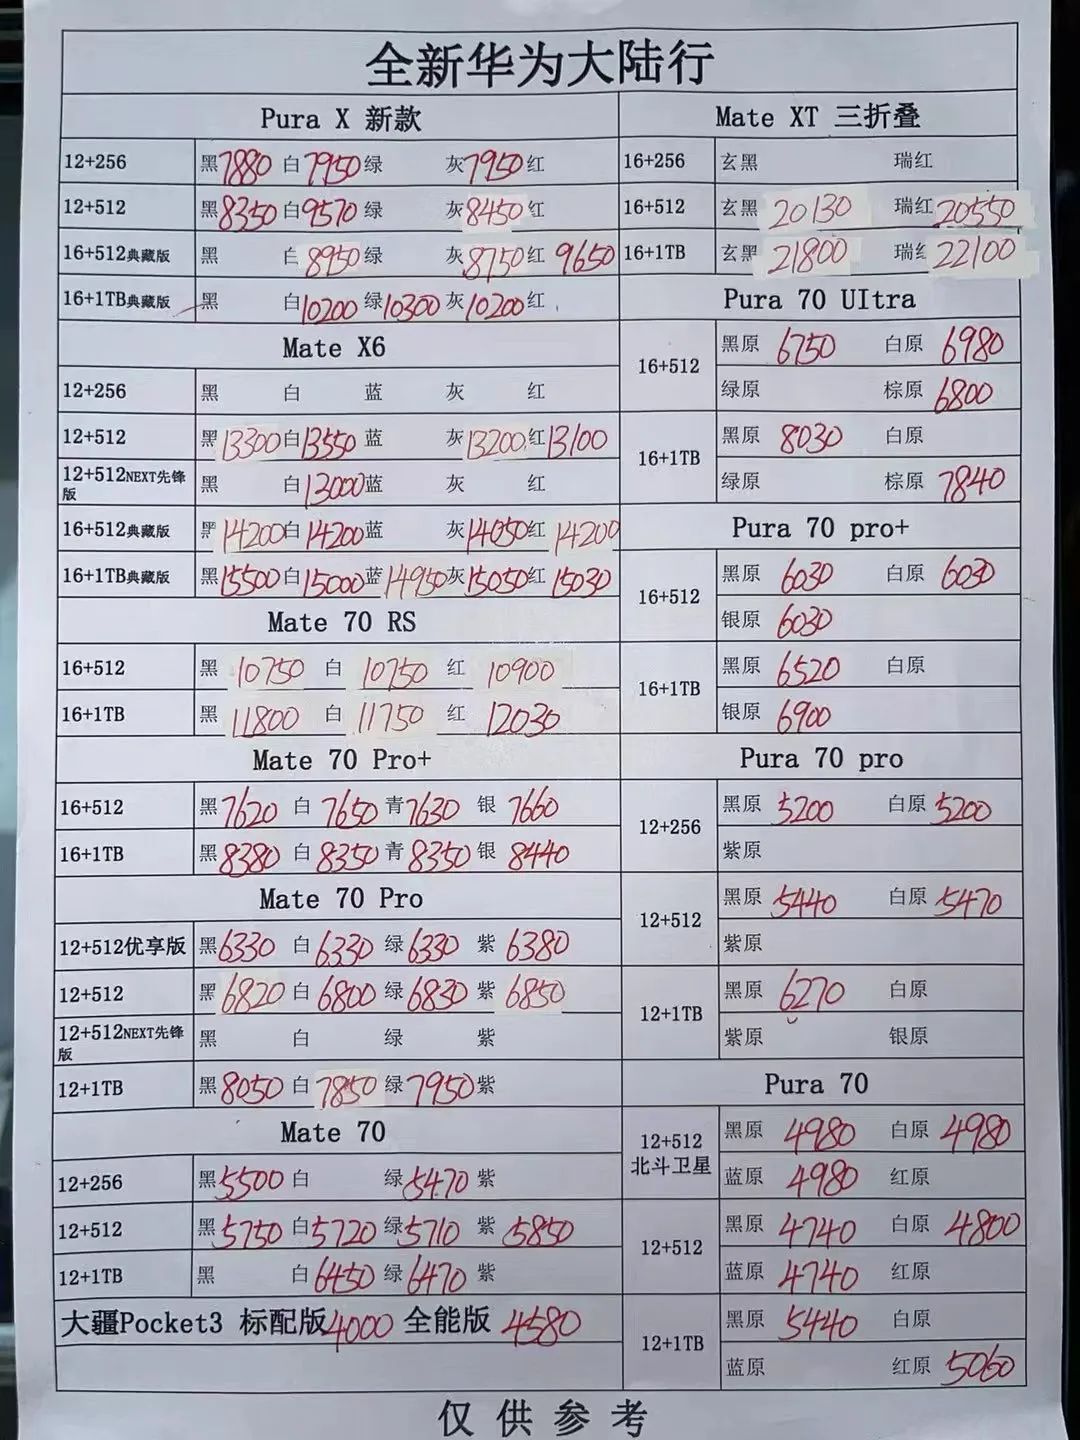 全新华为大陆行
Pura X 新款
12+256 黑7880 白7950 绿 灰7950 红
12+512 黑8350 白9570 绿 灰8450 红
16+512典藏版 黑 白8950 绿 灰8750 红 9650
16+1TB典藏版 黑 白10200 绿10300 灰10200 红
Mate X6
12+256 黑 白 蓝 灰 红
12+512 黑13300 白13550 蓝 灰13200 红13100
12+512NEXT先锋版 黑 白13000 蓝 灰 红
16+512典藏版 黑14200 白14200 蓝 灰14050 红14200
16+1TB典藏版 黑15500 白15000 蓝14950 灰15050 红15030
Mate 70 RS
16+512 黑 10750 白 10750 红 10900
16+1TB 黑 11800 白 11750 红 12030
Mate 70 Pro+
16+512 黑7620 白 7650 青7630 银 7660
16+1TB 黑8380 白 8350 青8350 银 8440
Mate 70 Pro
12+512优享版 黑6330 白6330 绿6330 紫 6380
12+512 黑6820 白6800 绿6830 紫 6850
12+512NEXT先锋版 黑 白 绿 紫
12+1TB 黑8050 白7850 绿7950 紫
Mate 70
12+256 黑5500 白 绿5470 紫
12+512 黑5750 白5720 绿5710 紫 5850
12+1TB 黑 白6450 绿6470 紫
大疆Pocket3 标配版4000 全能版 4580
Mate XT 三折叠
16+256 玄黑 瑞红
16+512 玄黑 20130 瑞红20550
16+1TB 玄黑 21800 瑞红22100
Pura 70 UItra
16+512 黑原 6750 白原 6980
绿原 棕原 6800
16+1TB 黑原 8030 白原
绿原 棕原 7840
Pura 70 pro+
16+512 黑原 6030 白原 6030
银原 6030
16+1TB 黑原 6520 白原
银原 6900
Pura 70 pro
12+256 黑原 5200 白原 5200
紫原
12+512 黑原 5440 白原 5470
紫原
12+1TB 黑原 6270 白原
紫原 银原
Pura 70
12+512北斗卫星 黑原 4980 白原 4980
蓝原 4980 红原
12+512 黑原 4740 白原 4800
蓝原 4740 红原
12+1TB 黑原 5440 白原
蓝原 红原 5060
仅供参考